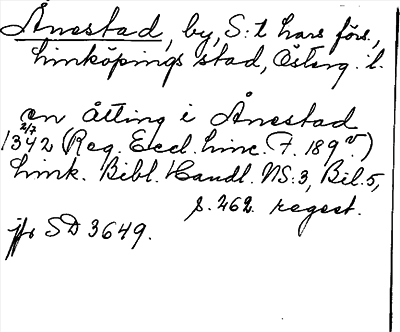 Ånestad, by, S:t Lars förs.,
Linköpings stad, Österg. l.
en åtting i Ånestad
2/7
1342 (Reg. Eccl. Linc. F. 189 v.)
Link. Bibl. Handl. NS:3, Bil. 5,
s. 262. regest.
jfr SD 3649.